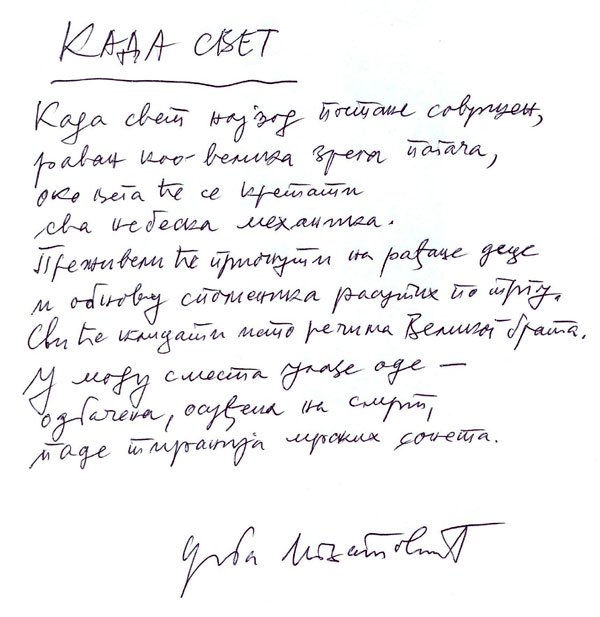 КАДА СВЕТ
Када свет најзод постане савршен,
раван као велика зрела погача,
око њега ће се кретати
сва небеска механика.
Преживели ће принути на рађање деце
и обнову споменика расутих по тргу.
Сви ће клицати исто речима Великог брата.
У моду сместа улазе оде —
одбачена, осуђена на смрт,
паде тиранија мрских сонета.